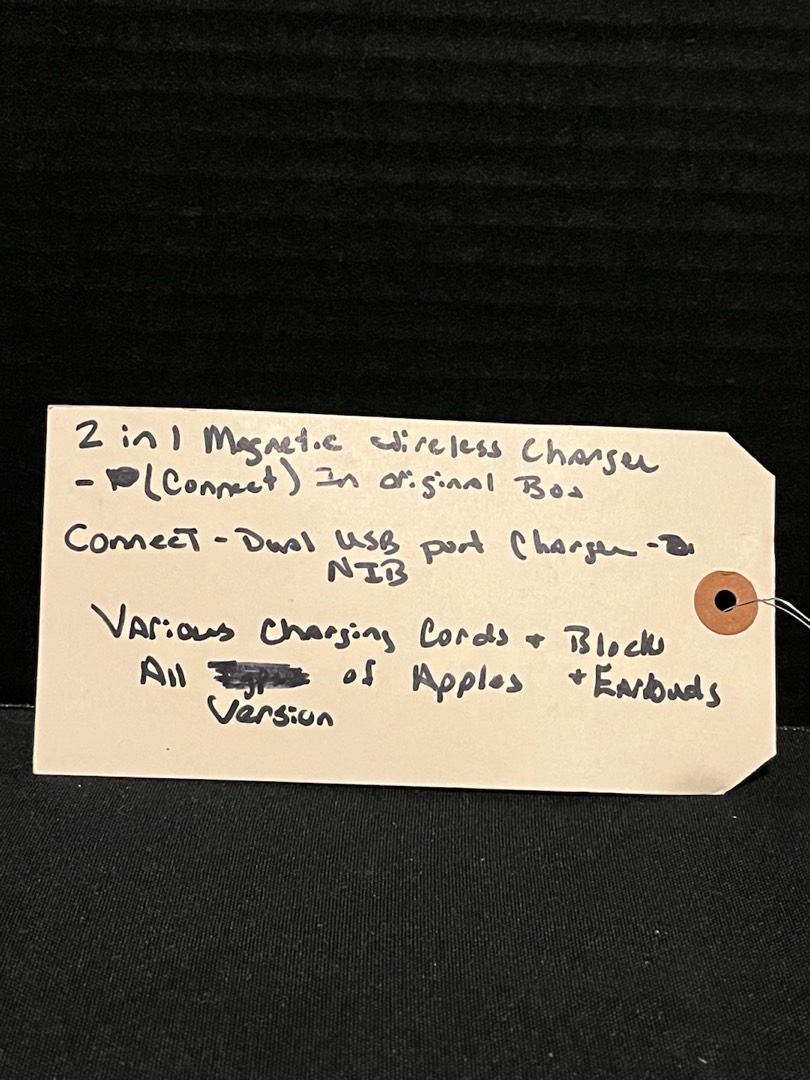 2 in 1 Magnetic Wireless Charger
- (Connect) In original Box
Connect - Dual USB port Charger -
NIB
Various Charging Cords + Blocks
All of Apples + Earbuds
Version